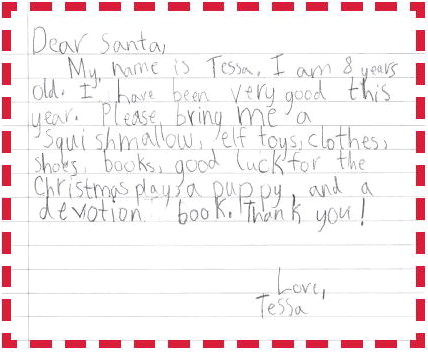 Dear Santa,
My name is Tessa. I am 8 years
old. I have been very good this
year. Please bring me a
Squishmallow, elf toys, clothes,
shoes, books, good luck for the
Christmas play, a puppy, and a
devotion book. Thank you!
Love,
Tessa